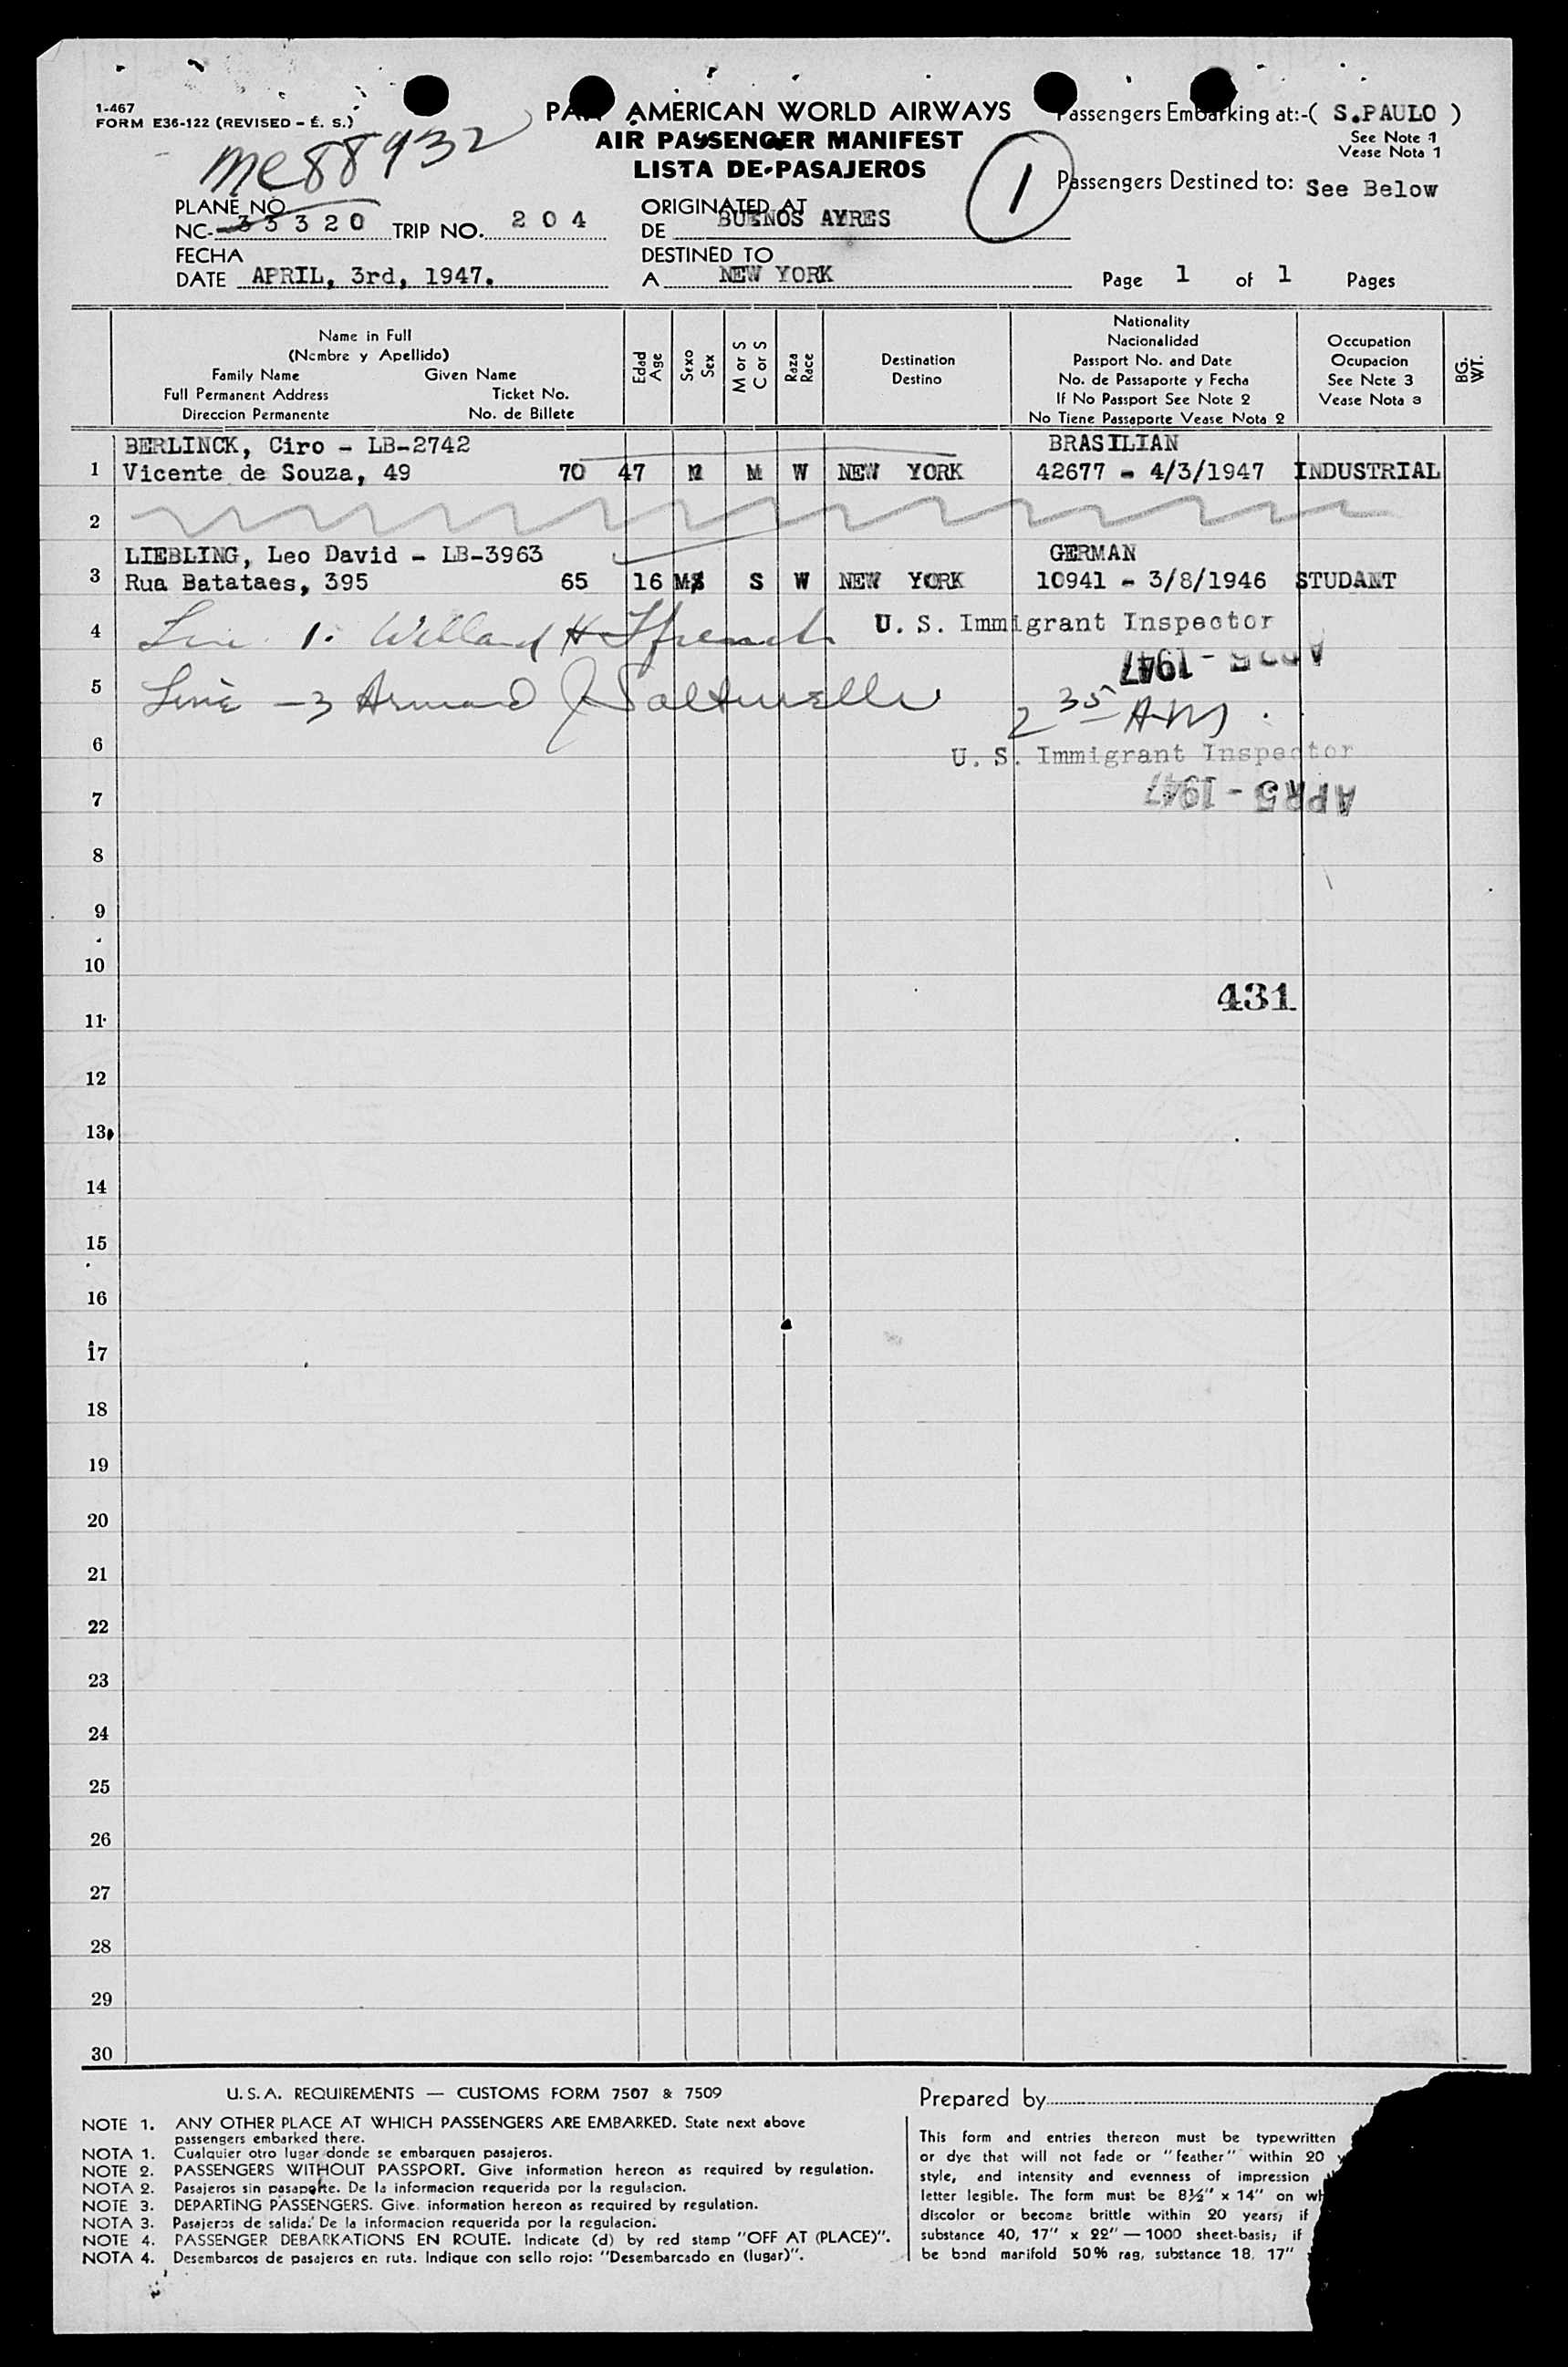 1-467
FORM E36-122 (REVISED - E. S.)
PAN AMERICAN WORLD AIRWAYS
AIR PASSENGER MANIFEST
LISTA DE PASAJEROS
Passengers Embarking at:-( S.PAULO )
See Note 1
Vease Nota 1
1
Passengers Destined to: See Below
PLANE NO
NC- 33320 TRIP NO. 204
FECHA
DATE APRIL, 3rd, 1947.
ORIGINATED AT
DE BUENOS AYRES
DESTINED TO
A NEW YORK
Page 1 of 1 Pages
Name in Full
(Nombre y Apellido)
Family Name Given Name
Full Permanent Address Ticket No.
Direccion Permanente No. de Billete
Edad
Age
Sexo
Sex
M or S
C or S
Raza
Race
Destination
Destino
Nationality
Nacionalidad
Passport No. and Date
No. de Passaporte y Fecha
If No Passport See Note 2
No Tiene Passaporte Vease Nota 2
Occupation
Ocupacion
See Note 3
Vease Nota 3
BG.
WT.
BERLINCK, Ciro - LB-2742 BRASILIAN
1 Vicente de Souza, 49 70 47 M M W NEW YORK 42677 - 4/3/1947 INDUSTRIAL
2
LIEBLING, Leo David - LB-3963 GERMAN
3 Rua Batataes, 395 65 16 M S W NEW YORK 10941 - 3/8/1946 STUDANT
4 Line 1. Willard H Ffrench U. S. Immigrant Inspector
APR 5 - 1947
5 Line - 3 Armand J
2 35 AM
6 U. S. Immigrant Inspector
7 APR 5 - 1947
8
9
10
431
11
12
13
14
15
16
17
18
19
20
21
22
23
24
25
26
27
28
29
30
U.S.A. REQUIREMENTS — CUSTOMS FORM 7507 & 7509
NOTE 1. ANY OTHER PLACE AT WHICH PASSENGERS ARE EMBARKED. State next above
passengers embarked there.
NOTA 1. Cualquier otro lugar donde se embarquen pasajeros.
NOTE 2. PASSENGERS WITHOUT PASSPORT. Give information hereon as required by regulation.
NOTA 2. Pasajeros sin pasaporte. De la informacion requerida por la regulacion.
NOTE 3. DEPARTING PASSENGERS. Give information hereon as required by regulation.
NOTA 3. Pasajeros de salida. De la informacion requerida por la regulacion.
NOTE 4. PASSENGER DEBARKATIONS EN ROUTE. Indicate (d) by red stamp "OFF AT (PLACE)".
NOTA 4. Desembarcos de pasajeros en ruta. Indique con sello rojo: "Desembarcado en (lugar)".
Prepared by
This form and entries thereon must be typewritten
or dye that will not fade or "feather" within 20
style, and intensity and evenness of impression
letter legible. The form must be 8½" x 14" on
discolor or become brittle within 20 years; if
substance 40, 17" x 22" — 1000 sheet-basis; if
be bond manifold 50% rag, substance 18, 17"